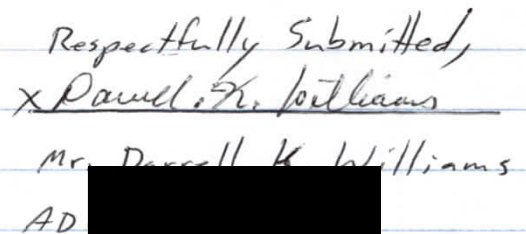 Respectfully Submitted,
X Darrell. K. Williams
Mr. Darrell K Williams
AD